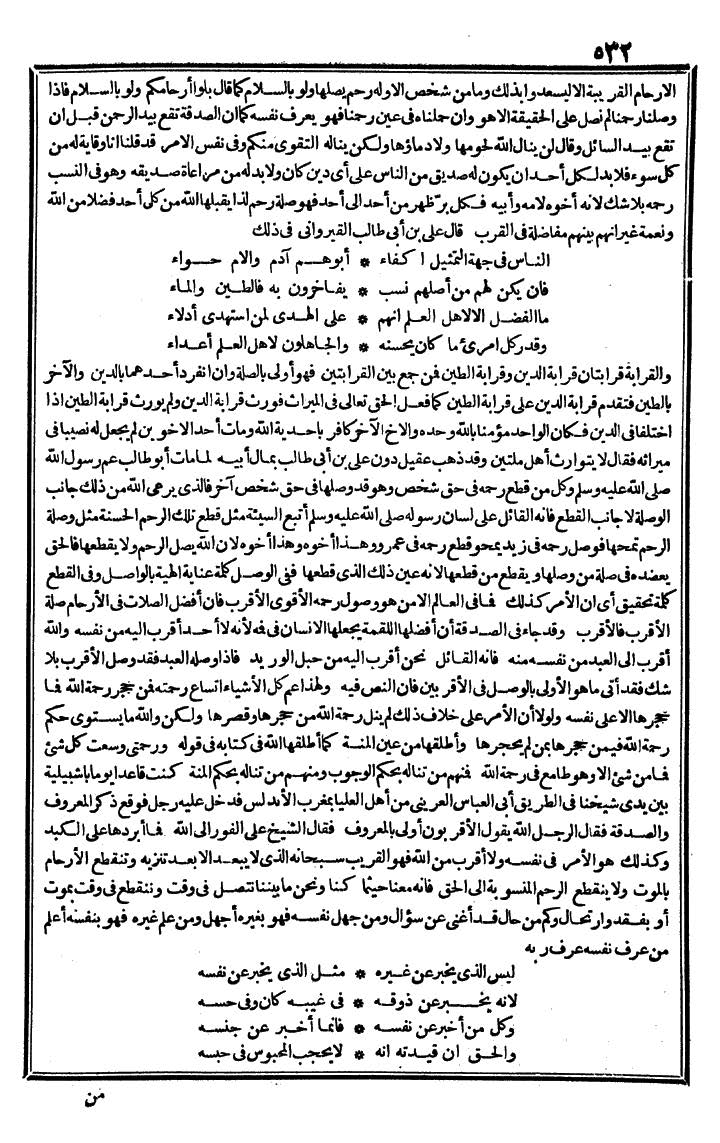 ٥٣٢
الارحام القريبة الا ليسعدوا بذلك وما من شخص الا وله رحم يصلها ولو بالسلام كما قال بلوا أرحامكم ولو بالسلام فاذا
وصلنا رحمنا لم نصل على الحقيقة الا هو وان جملناه فى عين رحمنا فهو يعرف نفسه كما ان الصدقة تقع بيد الرحمن قبل ان
تقع بيد السائل وقال لن ينال الله لحومها ولا دماؤها ولكن يناله التقوى منكم وفى نفس الامر قد قلنا انا وقاية له من
كل سوء فلا بد لكل أحد ان يكون له صديق من الناس على أى دين كان ولا بد له من مراعاة صديقه وهو فى النسب
رحمه بلا شك لانه أخوه لامه وأبيه فكل برّ ظهر من أحد الى أحد فهو صلة رحم لذا يقبلها الله من كل أحد فضلا من الله
ونعمة غير انهم بينهم مفاضلة فى القرب قال على بن أبى طالب القيروانى فى ذلك
الناس فى جهة التمثيل اكفاء * أبوهم آدم والام حواء
فان يكن لهم من أصلهم نسب * يفاخرون به فالطين والماء
ما الفضل الا لاهل العلم انهم * على الهدى لمن استهدى أدلاء
وقدر كل امرئ ما كان يحسنه * والجاهلون لاهل العلم أعداء
والقرابة قرابتان قرابة الدين وقرابة الطين فمن جمع بين القرابتين فهو أولى بالصلة وان انفرد أحدهما بالدين والآخر
بالطين فتقدم قرابة الدين على قرابة الطين كما فعل الحق تعالى فى الميراث فورث قرابة الدين ولم يورث قرابة الطين اذا
اختلفا فى الدين فكان الواحد مؤمنا بالله وحده والاخ الآخر كافر باحدية الله ومات أحد الاخوين لم يجعل له نصيبا فى
ميراثه فقال لا يتوارث أهل ملتين وقد ذهب عقيل دون على بن أبى طالب بمال أبيه لما مات أبو طالب عم رسول الله
صلى الله عليه وسلم وكل من قطع رحمه فى حق شخص وهو قد وصلها فى حق شخص آخر فالذى يرعى الله من ذلك جانب
الوصلة لا جانب القطع فانه القائل على لسان رسوله صلى الله عليه وسلم أتبع السيئة مثل قطع تلك الرحم الحسنة مثل وصلة
الرحم تمحها فوصل رحمه فى زيد يمحو قطع رحمه فى عمرو وهذا أخوه وهذا أخوه لان الله يصل الرحم ولا يقطعها فالحق
يعضده فى صلة من وصلها ويقطع من قطعها لانه عين ذلك الذى قطعها ففى الوصل كلمة عناية الهية بالواصل وفى القطع
كلمة تحقيق أى ان الأمر كذلك فما فى العالم الا من هو وصول رحمه الأقوى الأقرب فان أفضل الصلات فى الأرحام صلة
الأقرب فالأقرب وقد جاء فى الصدقة أن أفضلها اللقمة يجعلها الانسان فى فمه لأنه لا أحد أقرب اليه من نفسه والله
أقرب الى العبد من نفسه منه فانه القائل نحن أقرب اليه من حبل الوريد فاذا وصله العبد فقد وصل الأقرب بلا
شك فقد أتى ما هو الأولى بالوصل فى الأقربين فان النص فيه ولهذا عم كل الأشياء اتساع رحمته فمن حجر رحمة الله فما
حجرها الا على نفسه ولولا أن الأمر على خلاف ذلك لم ينل رحمة الله من حجرها وقصرها ولكن والله ما يستوى حكم
رحمة الله فيمن حجرها بمن لم يحجرها وأطلقها من عين المنة كما أطلقها الله فى كتابه فى قوله ورحمتى وسعت كل شئ
فما من شئ الا وهو طامع فى رحمة الله فمنهم من تناله بحكم الوجوب ومنهم من تناله بحكم المنة كنت قاعدا يوما باشبيلية
بين يدى شيخنا فى الطريق أبى العباس العرينى من أهل العليا بمغرب الأندلس فدخل عليه رجل فوقع ذكر المعروف
والصدقة فقال الرجل الله يقول الأقربون أولى بالمعروف فقال الشيخ على الفور الى الله فما أبردها على الكبد
وكذلك هو الأمر فى نفسه ولا أقرب من الله فهو القريب سبحانه الذى لا يبعد الا بعد تنزيه وتنقطع الأرحام
بالموت ولا ينقطع الرحم المنسوبة الى الحق فانه معنا حيثما كنا ونحن ما بيننا تتصل فى وقت وتنقطع فى وقت بموت
أو بفقد وارتحال وكم من حال قد أغنى عن سؤال ومن جهل نفسه فهو بغيره أجهل ومن علم غيره فهو بنفسه أعلم
من عرف نفسه عرف ربه
ليس الذى يخبر عن غيره * مثل الذى يخبر عن نفسه
لانه يخبر عن ذوقه * فى غيبه كان وفى حسه
وكل من أخبر عن نفسه * فانما أخبر عن جنسه
والحق ان قيدته انه * لا يحجب المحبوس فى حبسه
من